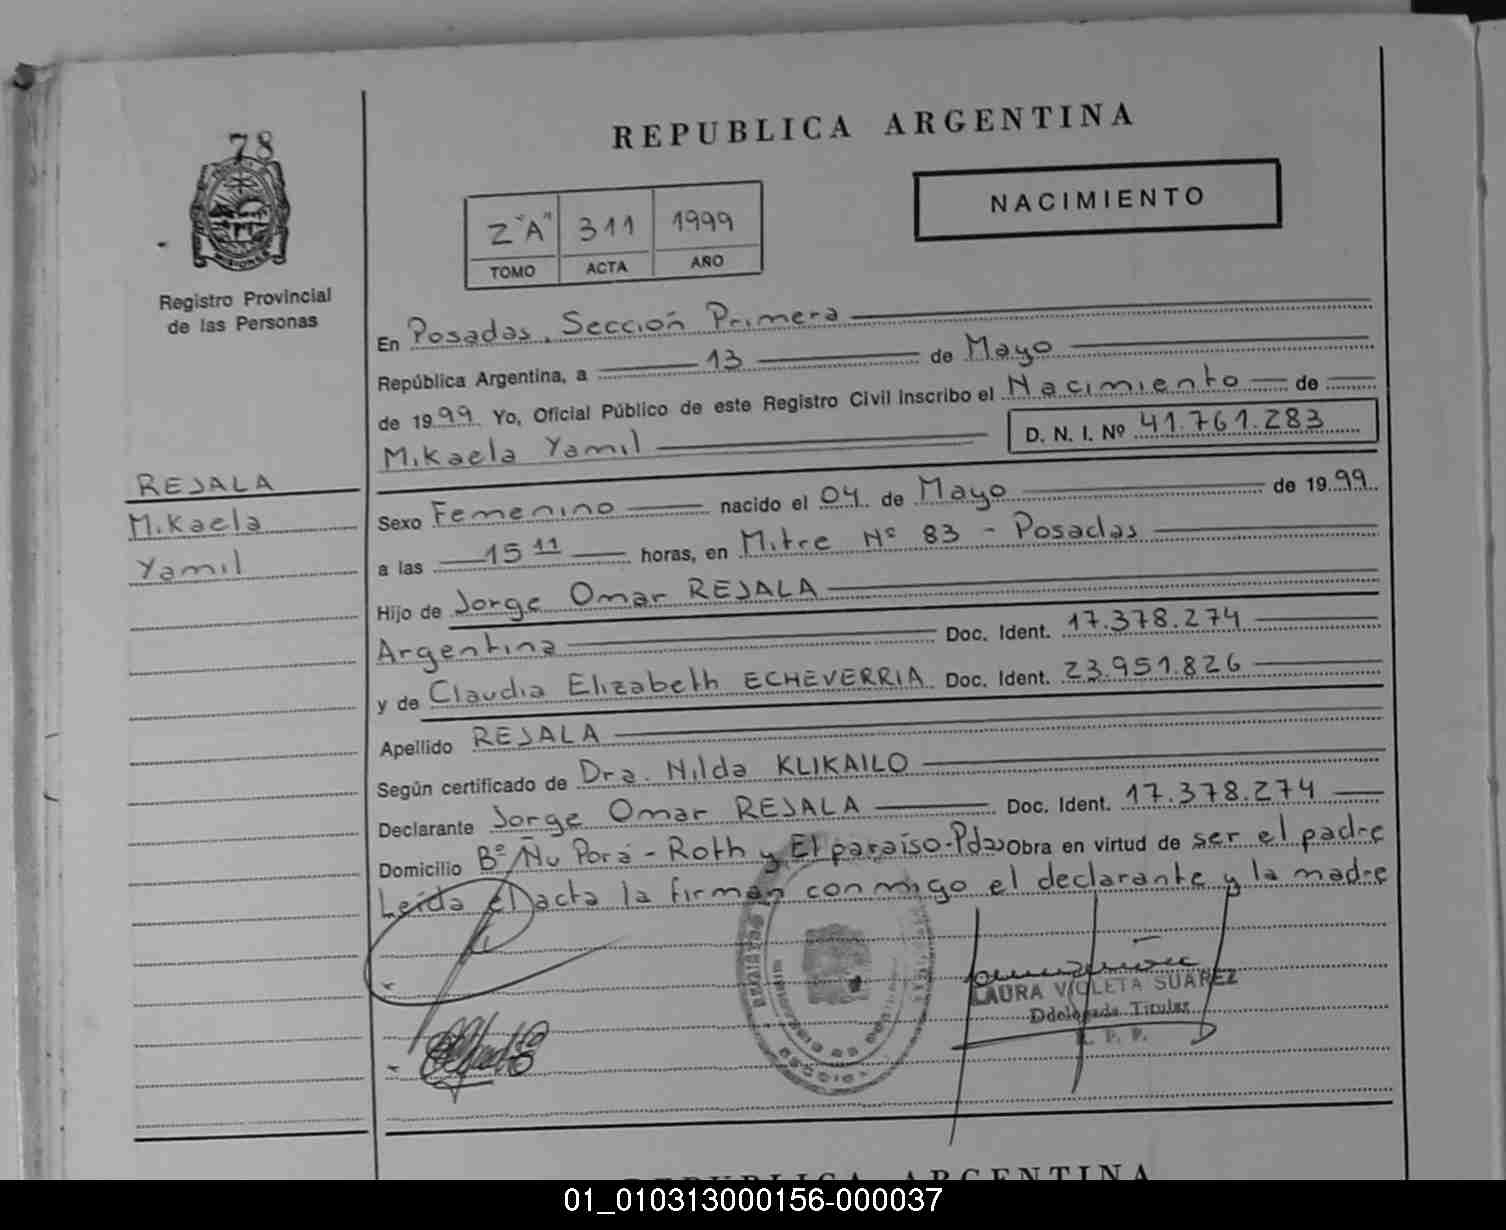 78
Registro Provincial
de las Personas
REPUBLICA ARGENTINA
NACIMIENTO
2 "A" 311 1999
TOMO ACTA AÑO
En Posadas, Sección Primera
República Argentina, a 13 de Mayo
de 1999 Yo, Oficial Público de este Registro Civil inscribo el Nacimiento de
Mikaela Yamil D. N. I. Nº 41.761.283
REJALA
Mikaela
Yamil
Sexo Femenino nacido el 04 de Mayo de 1999
a las 15 11 horas, en Mitre Nº 83 - Posadas
Hijo de Jorge Omar REJALA
Argentina Doc. Ident. 17.378.274
y de Claudia Elizabeth ECHEVERRIA Doc. Ident. 23.951.826
Apellido REJALA
Según certificado de Dra. Nilda KLIKAILO
Declarante Jorge Omar REJALA Doc. Ident. 17.378.274
Domicilio Bº Ñu Porá - Roth y El paraíso - Pdas Obra en virtud de ser el padre
Leída el acta la firman conmigo el declarante y la madre
LAURA VIOLETA SUAREZ
Ddelegada Titular
R. P. P.
REPUBLICA ARGENTINA
01_010313000156-000037